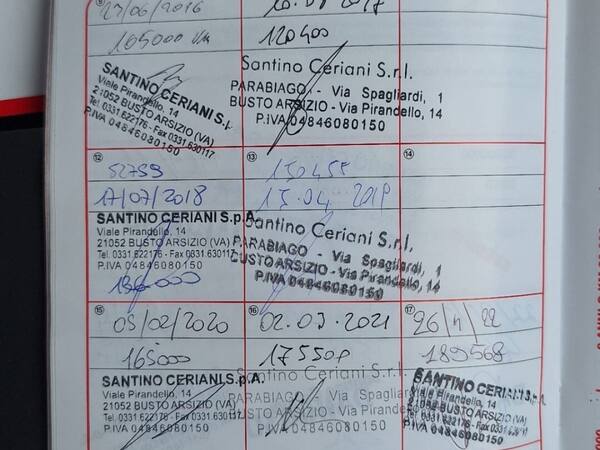 27/06/2016
165000 KM
120400
SANTINO CERIANI S.r.l.
Viale Pirandello, 14
21052 BUSTO ARSIZIO (VA)
Tel. 0331.622176 - Fax 0331.630117
P.IVA 04846080150
Santino Ceriani S.r.l.
PARABIAGO - Via Spagliardi, 1
BUSTO ARSIZIO - Via Pirandello, 14
P.iVA 04846080150
12
17/07/2018
SANTINO CERIANI S.p.A.
Viale Pirandello, 14
21052 BUSTO ARSIZIO (VA)
Tel. 0331.622176 - Fax 0331.630117
P.IVA 04846080150
13
15.04.2019
Santino Ceriani S.r.l.
PARABIAGO - Via Spagliardi, 1
BUSTO ARSIZIO - Via Pirandello, 14
P.IVA 04846080150
14
15
05/02/2020
165000
SANTINO CERIANI S.p.A.
Viale Pirandello, 14
21052 BUSTO ARSIZIO (VA)
Tel. 0331.622176 - Fax 0331.630117
P.IVA 04846080150
16
02.03.2021
Santino Ceriani S.r.l.
PARABIAGO - Via Spagliardi
BUSTO ARSIZIO - Via Pirandello
P.iVA 04846080150
17
26/11/22
189568
SANTINO CERIANI S.p.A.
Viale Pirandello, 14
21052 BUSTO ARSIZIO (VA)
P.IVA 04846080150